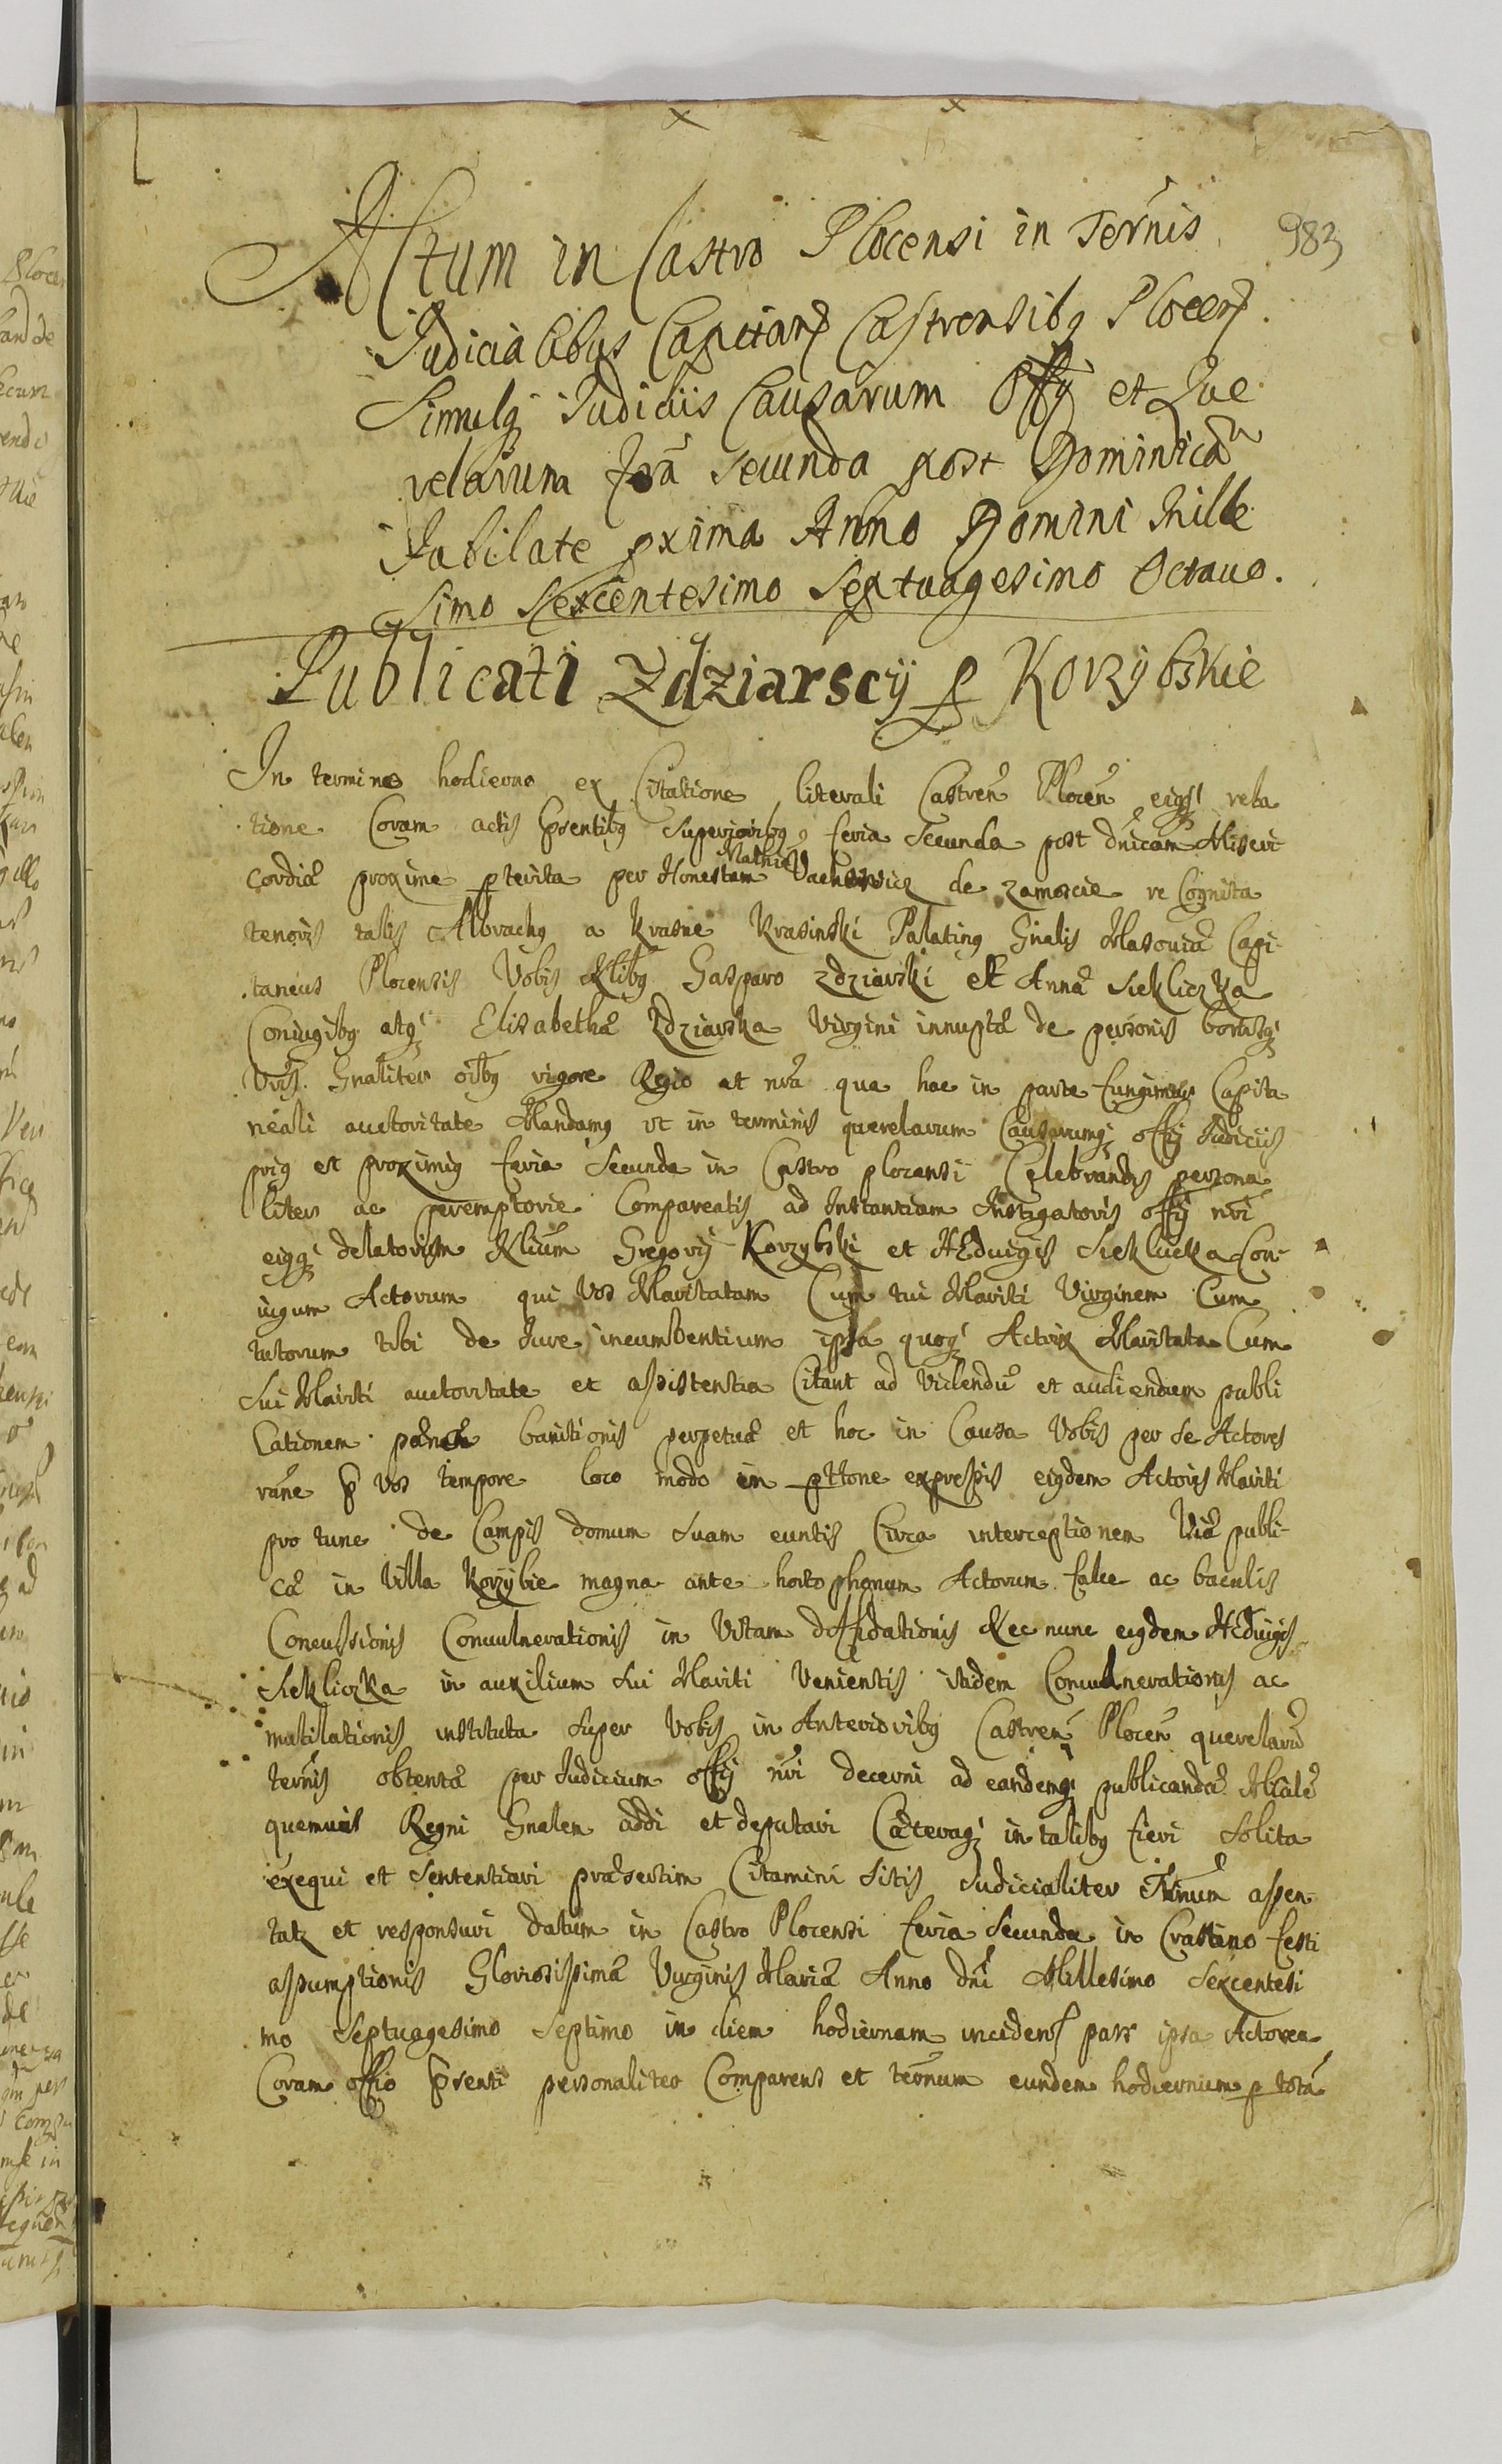 983
Actum in Castro Plocensi in Terńis
Judicialibus Capitan Castrensibq Plocen.
Simulq Judiciis Causarum Offij et Que
relarum fera secunda post Dominicã
Jubilate pxima Anno Domini Mille
simo Sexcentesimo Septuagesimo Octauo.
Publicati Zdziarscÿ p Korzÿbskie
In termino hodierno ex Citatione literali CastreñPloceñ eiqsq rela
tione Coram actis psentibq superioribq feria Secunda post dnicam Miseri
cordiæ proxime pterita per Honestum Mathiã de Zamoscie re Cognita
tenoris talis Albrachq a Krasne Krasinski Palatinq Gnalis Masouiæ Capi-
taneus Plocensis Vobis Gasparo Zdziarski et Annæ Siekliczka
Coniugibq atq Elisabethæ Zdziarska Virgini innuptæ de personis bonisq
Vris. Gnaliter oibq vigore Regio at nra qua hac in parte fungimur Capita
neali auctoritate Mandamq vt in terminis querelarum Causarumq offij Judiciis
priq et proximiq feria Secunda in Castro plocensi Celebrandis persona
liter ac peremptorie Compareatis ad Instantiam Instigatoris offij nri
eiqq delatorum Gregorij Korzybski et HEduigis Sieklucka Con-
iugum Actorum qui Vos Maritatam Cum tui Mariti Virginem Cum
tutorum tibi de Jure incumbentium ipsa quoq Actrix Maritata Cum
Sui Mariti auctoritate et assistentia Citant ad Videndũ et audiendum publi
Cationem pænæ banitionis perpetuæ et hoc in Causa Vobis per se Actores
rãne p vos tempore loco modo in pttone expressis eiqdem Actoris Mariti
pro tunc de Campis domum suam euntis Circa interceptionem Viæ publi-
cæ in Villa Korzybie magna ante hortophonum Actorum falce ac baculis
Concussionis Conuulnerationis in Vitam diffidationis Nec nunc eiqdem HEduigis
Siekliczka in auxilium Sui Mariti Venientis itidem Conuulnerationis ac
mutilationis instituta Super Vobis in Anterioribq Castreñ Ploceñ querelarũ
terñis obtentæ per Judicium offij nri decerni ad eandemq publicandã Mlialẽ
quemuis Regni Gnalem addi et deputari Cæteraq in talibq fieri Solita
exequi et Sententiari præsertim Citamini Sitis Judicialiter Trnum assen-
tatz et responsuri datum in Castro Plocensi feria Secunda in Crastino festi
assumptionis Gloriosissimæ Virginis Mariæ Anno dni Millesimo Sexcentesi
mo Septuagesimo Septimo in diem hodiernam inciden pars ipsa Actorea
Coram offio psenti personaliter Comparens et terñum eundem hodiernum p totã